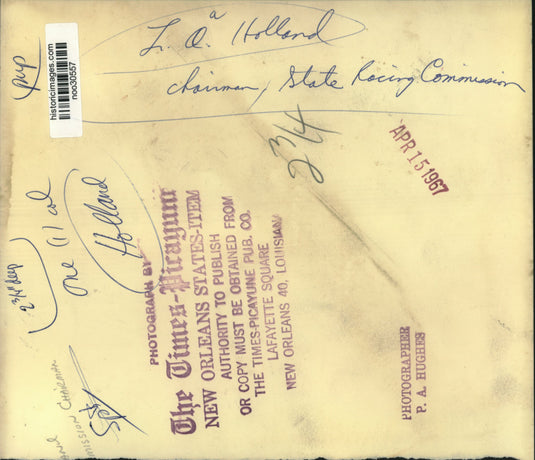 L. A. Holland
chairman, State Racing Commission
2 3/4
APR 15 1967
historicimages.com
noo30557
pup
2 3/4" deep
one (1) col
Holland
PHOTOGRAPH BY
The Times-Picayune
NEW ORLEANS STATES-ITEM
AUTHORITY TO PUBLISH
OR COPY MUST BE OBTAINED FROM
THE TIMES-PICAYUNE PUB. CO.
LAFAYETTE SQUARE
NEW ORLEANS 40, LOUISIANA
PHOTOGRAPHER
P. A. HUGHES
MISSION CHAIRMAN